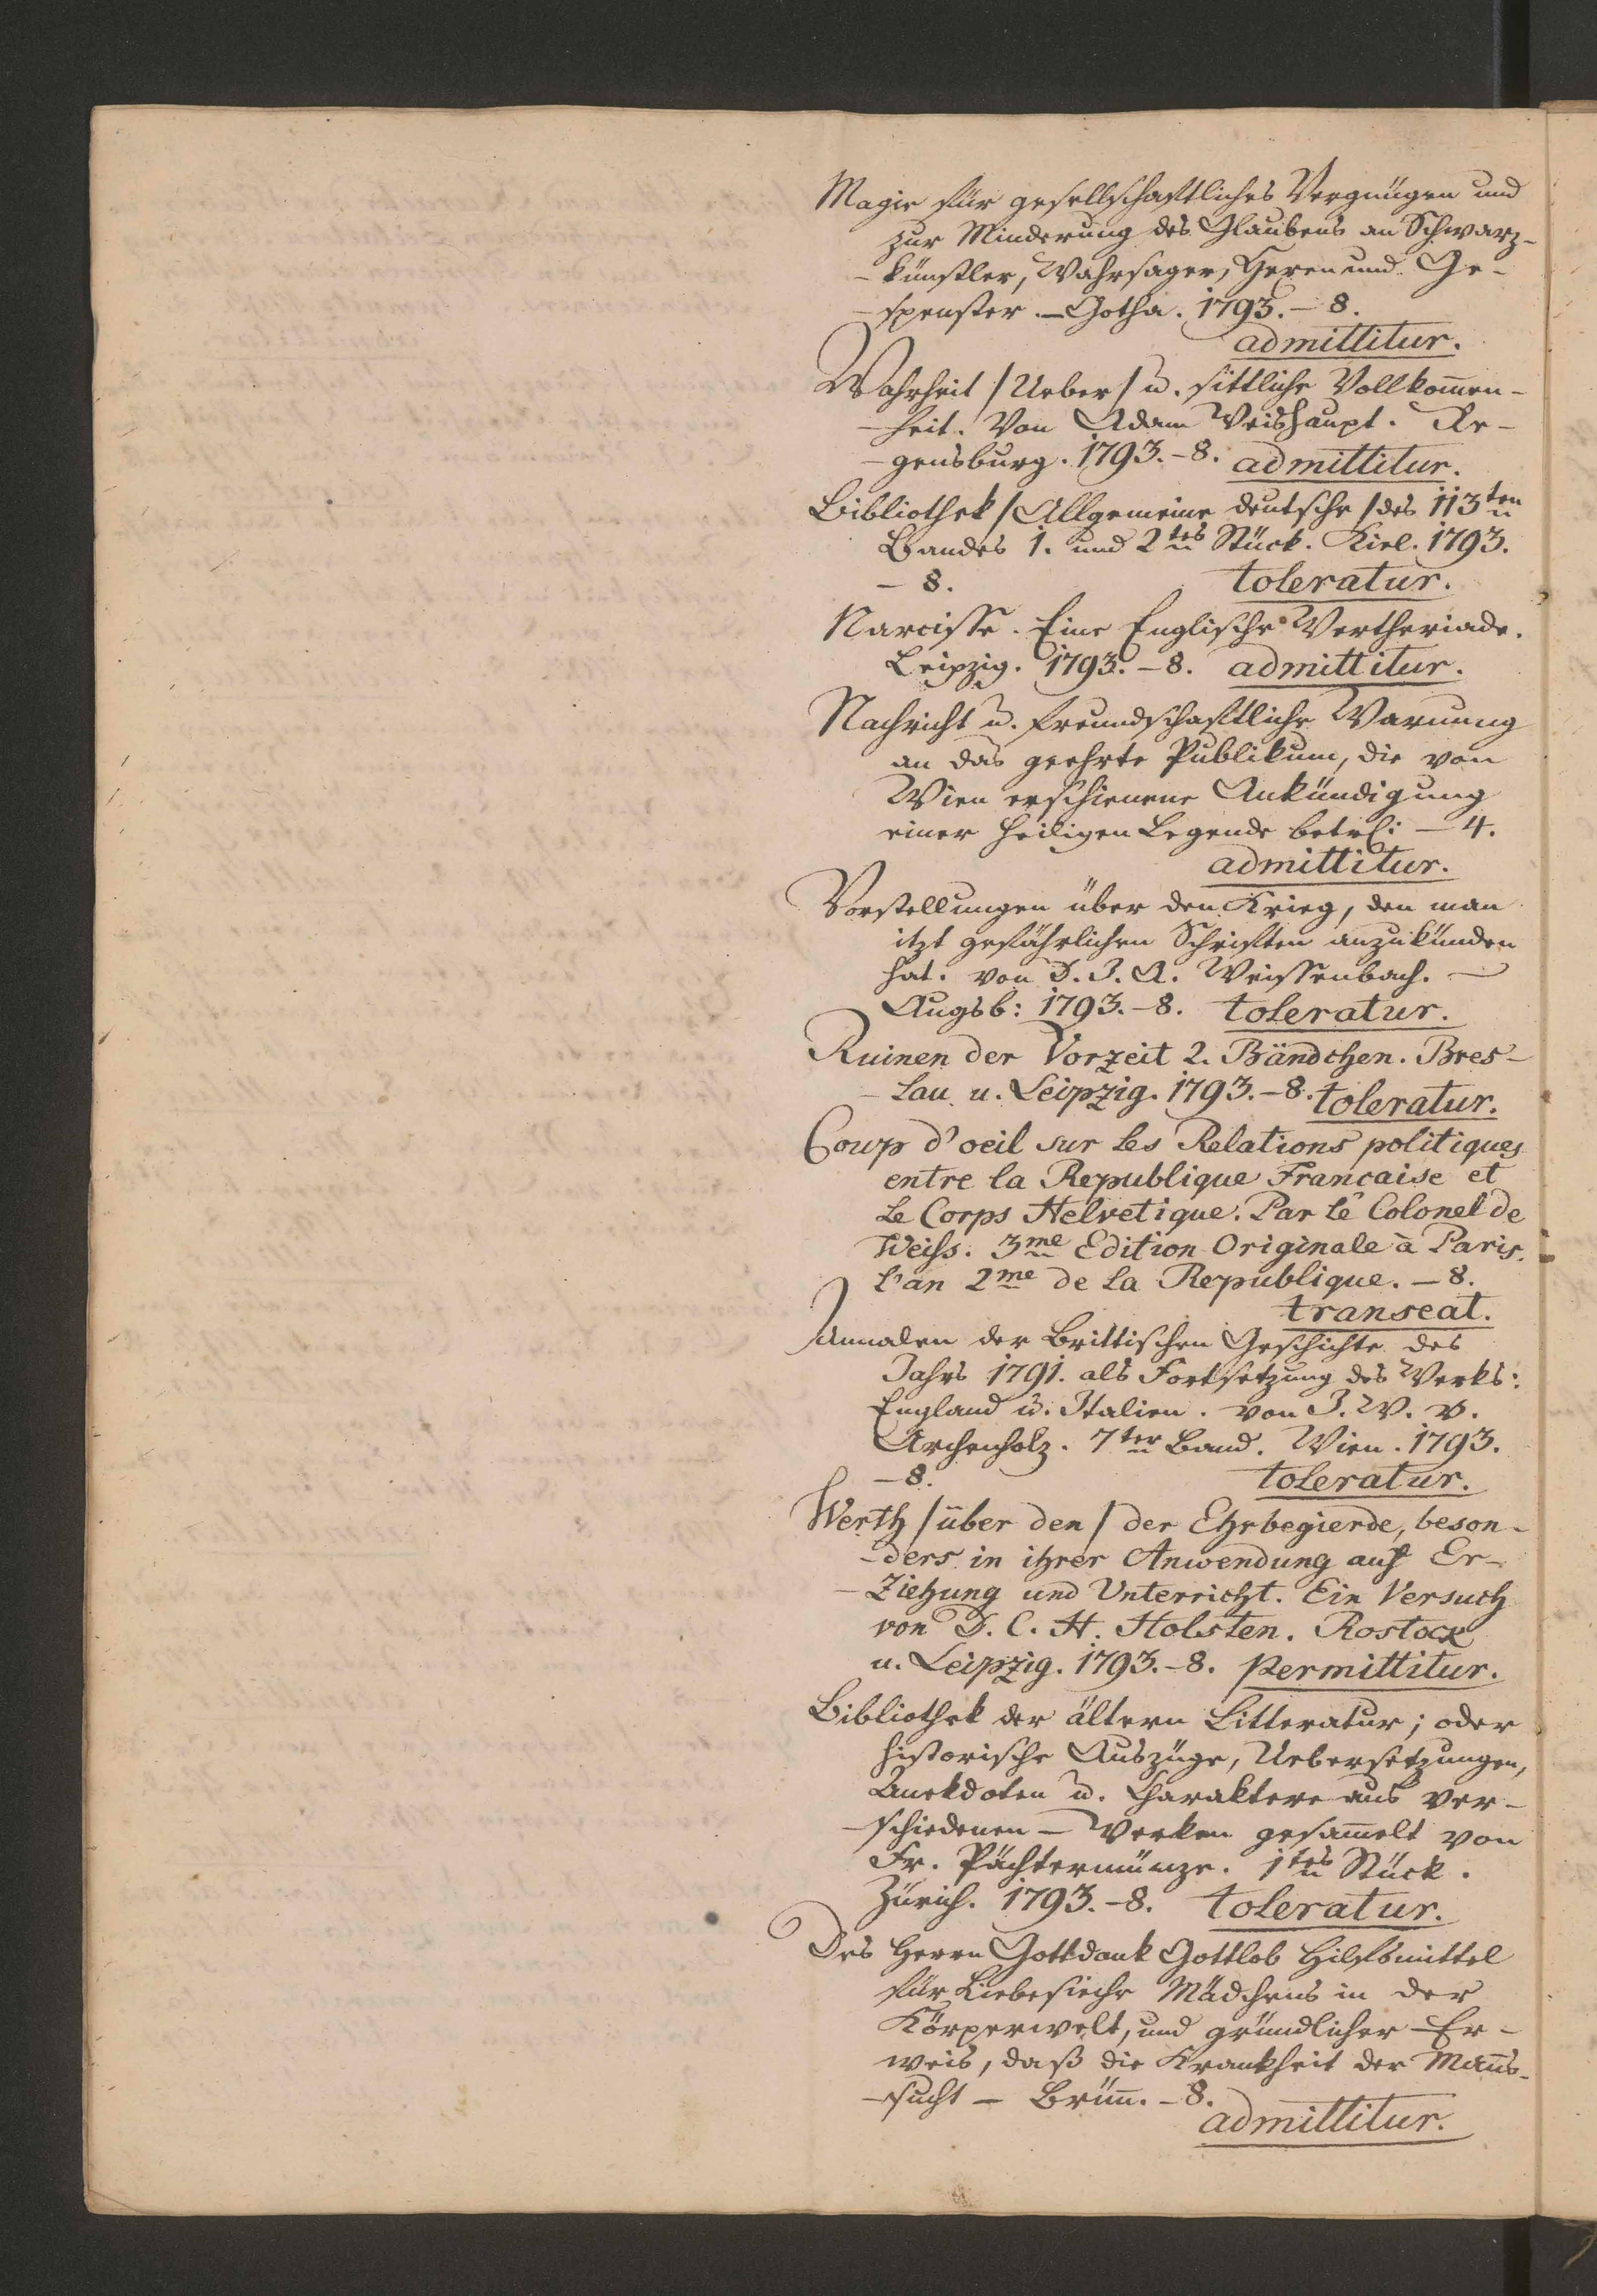 Magie für gesellschaftliches Vergnügen und
zur Minderung des Glaubens an Schwarz-
-künstler, Wahrsager, Hexen und Ge-
-spenster. – Gotha. 1793. – 8.
admittitur.
Wahrheit /Ueber/ u. sittliche Vollkom̅en-
-heit. Von Adam Weishaupt. Re-
-gensburg. 1793. – 8. admittitur.
Bibliothek /Allgemeine deutsche/ des 113ten
Bandes 1. und 2tes Stück. Kiel. 1793.
– 8. toleratur.
Narcisse. Eine Englische Wertheriade.
Leipzig. 1793. – 8. admittitur.
Nachricht u. freundschaftliche Warnung
an das geehrte Publikum, die von
Wien erschienene Ankündigung
einer heiligen Legende betrf: – 4.
admittitur.
Vorstellungen über den Krieg, den man
itzt gefährlichen Schriften anzukünden
hat. von D. J. A. Weissenbach. –
Augsb: 1793. – 8. toleratur.
Ruinen der Vorzeit 2. Bändchen. Bres-
-lau u. Leipzig. 1793. – 8. toleratur.
Coup d'oeil sur les Relations politiques
entre la Republique Francaise et
le Corps Helvetique. Par le Colonel de
Weiss. 3me Edition Originale à Paris.
l'an 2me de la Republique. – 8.
transeat.
Annalen der Brittischen Geschichte des
Jahrs 1791. als Fortsetzung des Werks:
England u. Italien. von J. W. v.
Archenholz. 7ter Band. Wien. 1793.
– 8. toleratur.
Werth /über den/ der Ehrbegierde, beson-
-ders in ihrer Anwendung auf Er-
-Ziehung und Unterricht. Ein Versuch
von D. C. H. Holsten. Rostock
u. Leipzig. 1793. – 8. permittitur.
Bibliothek der ältern Litteratur; oder
historische Auszüge, Uebersetzungen,
Anekdoten u. Charaktere aus ver-
-schiedenen – Werken gesam̅elt von
Fr. Pächtermünze. 1tes Stück.
Zürich. 1793. – 8. toleratur.
Des Herrn Gottdank Gottlob Hilfsmittel
für Liebesieche Mädchens in der
Körperwelt, und gründlicher Er-
weis, daß die Krankheit der Man̅s-
-sucht – Brün̅. – 8.
admittitur.